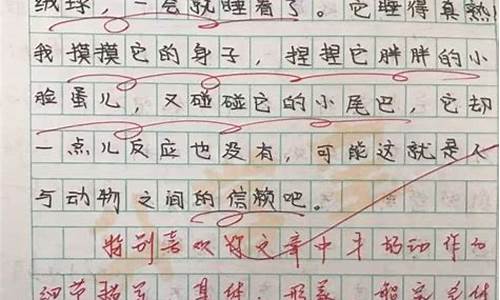 绒球，一会就睡着了。它睡得真熟
我摸摸它的身子，捏捏它胖胖的小
脸蛋儿，又碰碰它的小尾巴，它却
一点儿反应也没有，可能这就是人
与动物之间的信赖吧。
特别喜欢你文章中手的动作和
细节描写，具体，形象